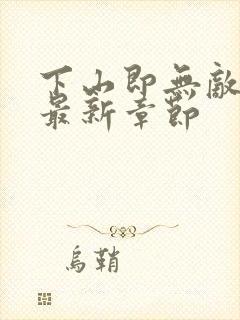 下山即無敵
最新章節
烏鞘